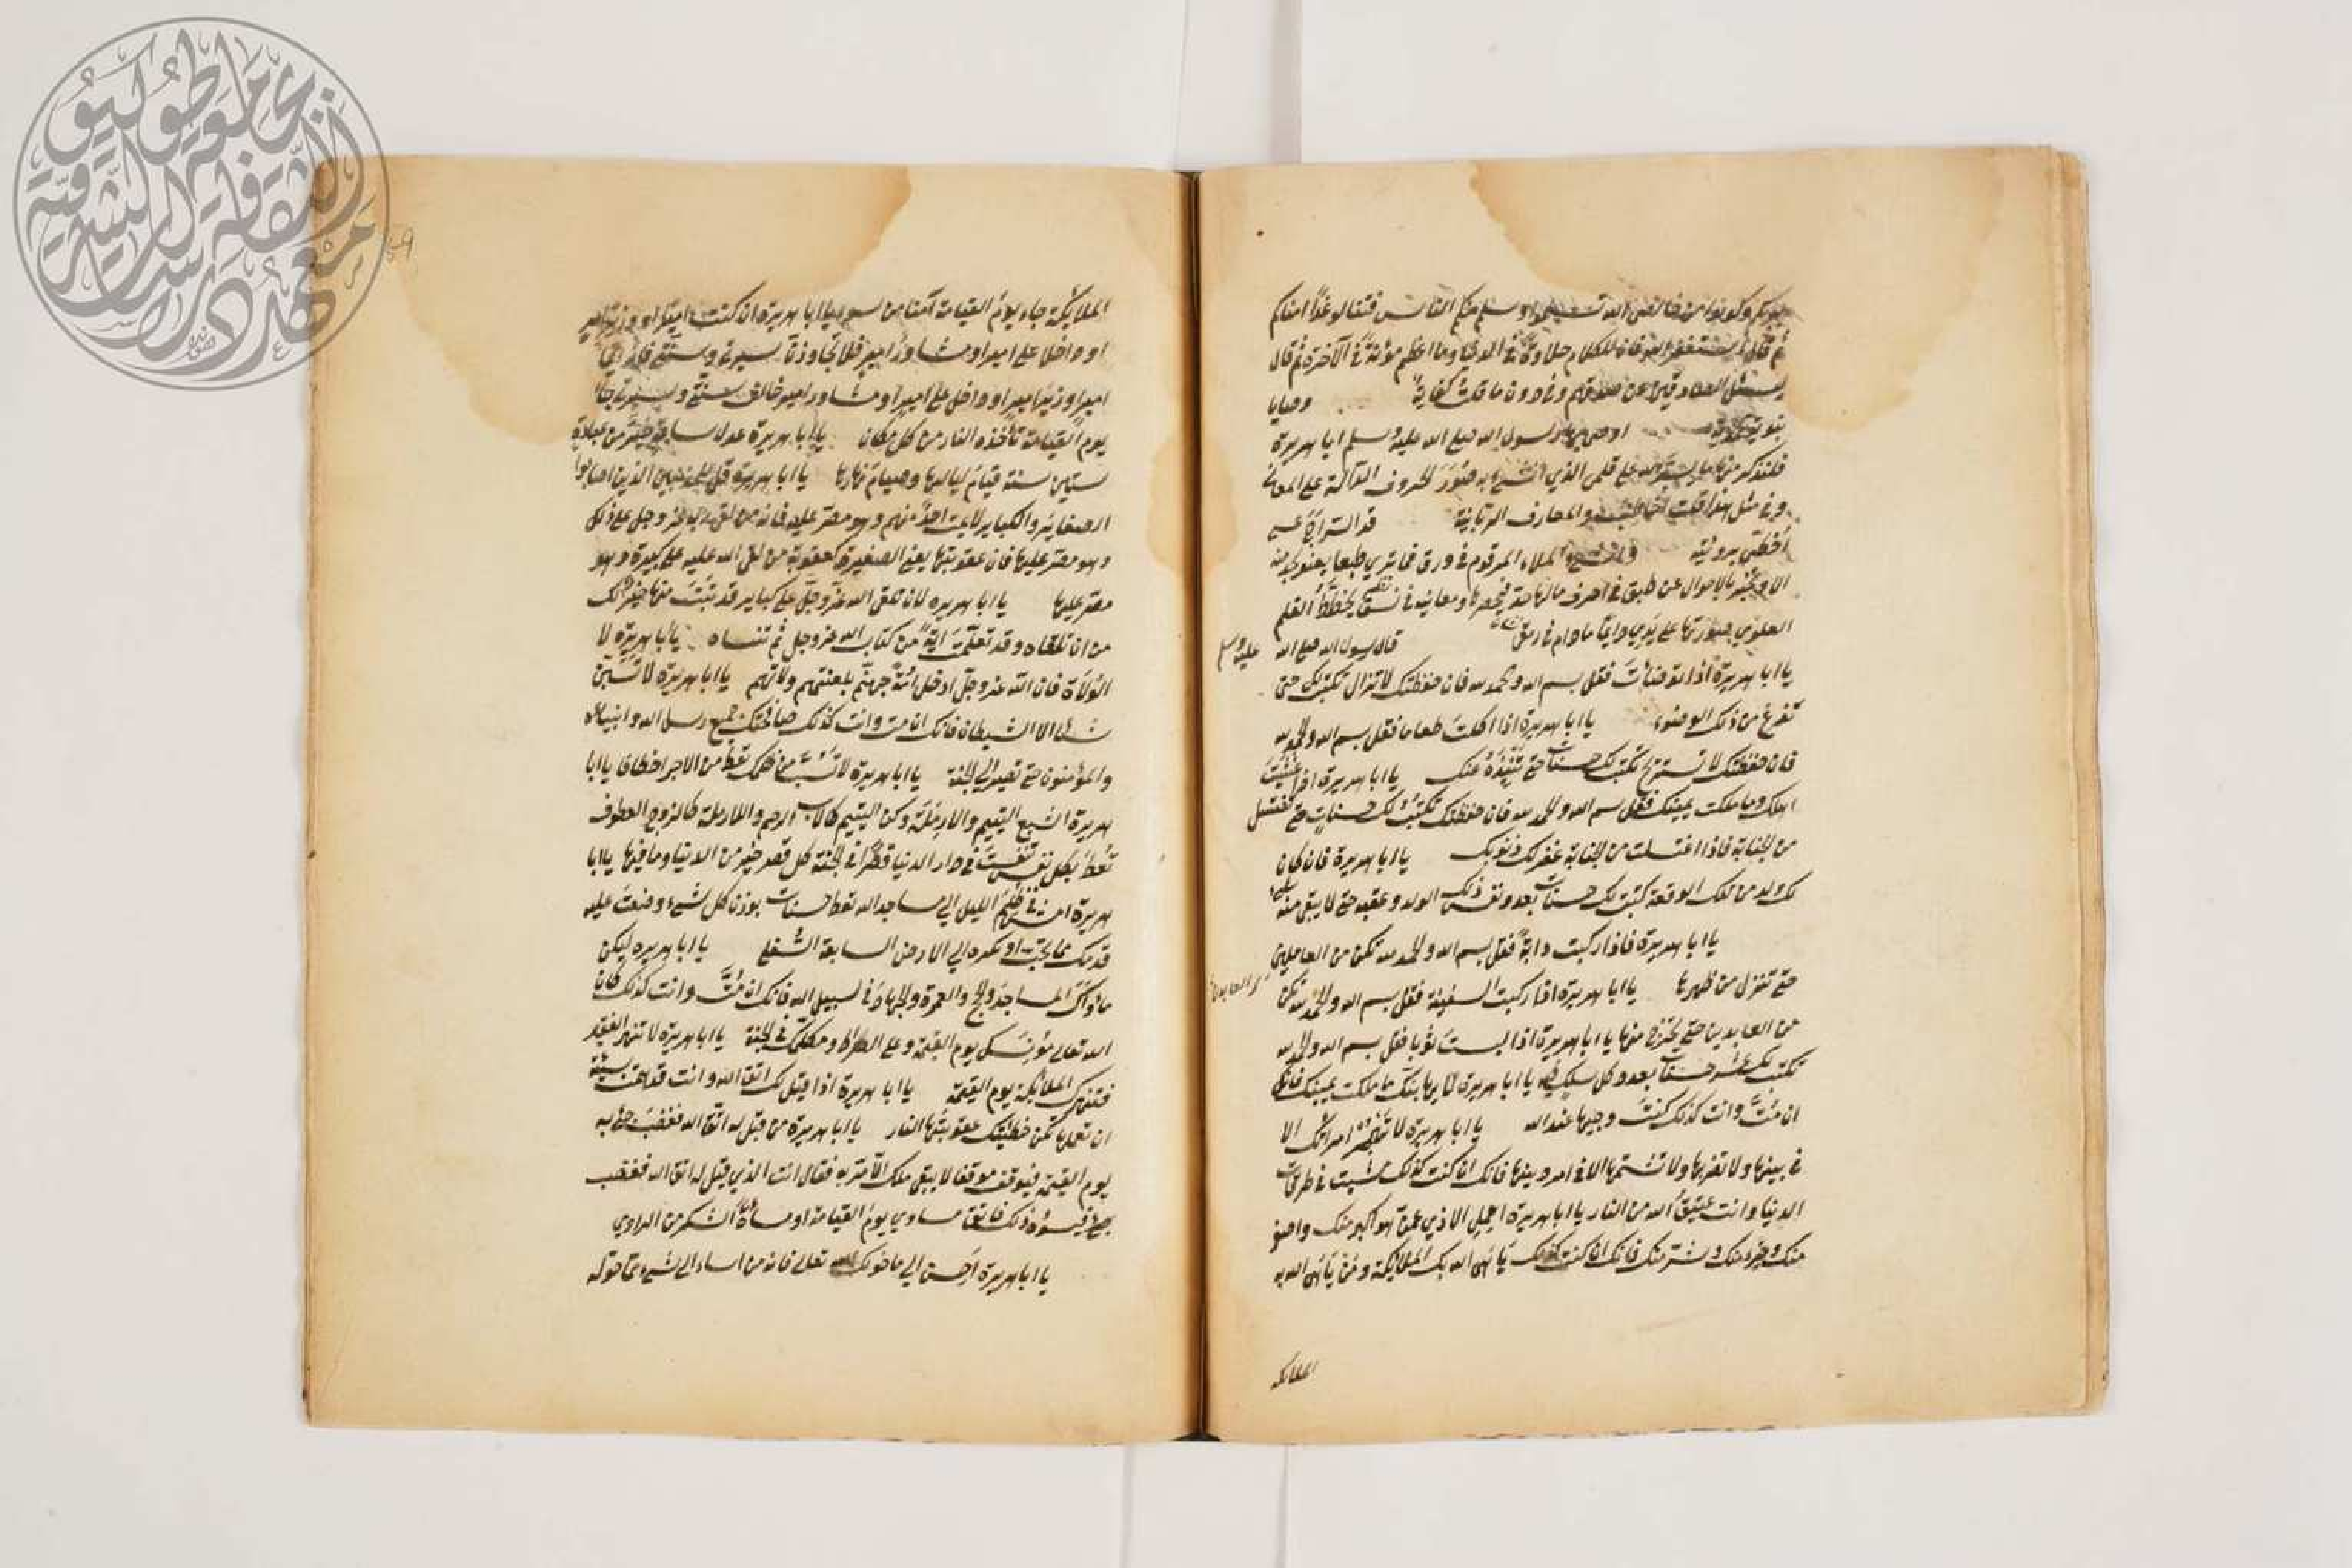 ثم قال استغفر الله فان للكلام حلاوة في الدنيا وما اعظم مؤنته في الآخرة ثم قال
ليسئل الصادقين عن صدقهم وفي دون ما قلت كفاية وصايا
نبوية اوصى بها رسول الله صلى الله عليه وسلم ابا هريرة
فلنذكر منها ما على قلمي الذي انشئ به صور الحروف الدالة على المعاني
وفي مثل هذا قلت والمعارف الربانية
المرقوم في ورق
العلوي قال رسول الله صلى الله
عليه وسلم
يا ابا هريرة اذا توضأت فقل بسم الله والحمد لله فان حفظتك لا تزال تكتب لك حتى
تفرغ من ذلك الوضوء يا ابا هريرة اذا اكلت طعاما فقل بسم الله والحمد لله
فان حفظتك لا تستريح تكتب لك حسنات حتى تنبذه عنك يا ابا هريرة اذا غشيت
اهلك وما ملكت يمينك فقل بسم الله والحمد لله فان حفظتك تكتب لك حسنات حتى تغتسل
من الجنابة فاذا اغتسلت من الجنابة غفر لك ذنوبك يا ابا هريرة فان كان
لك ولد من تلك الوقعة كتبت لك حسنات بعدد نفس ذلك الولد وعقبه حتى لا يبقى منه شيء
يا ابا هريرة فاذا ركبت دابة فقل بسم الله والحمد لله تكن من العابدين
حتى تنزل من ظهرها يا ابا هريرة اذا ركبت السفينة فقل بسم الله والحمد لله تكن
من العابدين حتى تخرج منها يا ابا هريرة اذا لبست ثوبا فقل بسم الله والحمد لله
تكتب لك عشر حسنات بعدد كل سلك فيه يا ابا هريرة لا يهابنك ما ملكت يمينك فانك
ان مت وانت كذلك كنت وجيها عند الله يا ابا هريرة لا تهجر امرأتك الا
في بيتها ولا تضربها ولا تشتمها الا في امر دينها فانك ان كنت كذلك مشيت في طرقات
الدنيا وانت عتيق الله من النار يا ابا هريرة احمل الاذى عمن هو اكبر منك واصغر
منك وخير منك وشر منك فانك ان كنت كذلك باهى الله بك الملائكة ومن باهى الله به
الملائكة
الملائكة جاء يوم القيامة آمنا من كل سوء يا ابا هريرة ان كنت اميرا او وزير امير
او داخلا على امير او مشاور امير فلا تجاوزن سيرتي وسنتي فانه ايما
امير او وزير امير او داخل على امير او مشاور امير خالف سنتي وسيرتي جاء
يوم القيامة تأخذه النار من كل مكان يا ابا هريرة عدل ساعة خير من عبادة
ستين سنة قيام ليالها وصيام نهارها يا ابا هريرة قل للمؤمنين الذين اصابوا
الصغائر والكبائر لا يمت احد منهم وهو مصر عليها فانه من لقي الله عز وجل على ذلك
وهو مصر عليها فان عقوبتها يعني الصغيرة كعقوبة من لقي الله عليه على كبيرة وهو
مصر عليها يا ابا هريرة لان تلقى الله عز وجل على كبائر قد تبت منها خير لك
من ان تلقاه وقد تعلمت آية من كتاب الله عز وجل ثم تنساه يا ابا هريرة لا تلعن
الولاة فان الله عز وجل ادخل امة جهنم بلعنتهم ولاتهم يا ابا هريرة لا تسبن
شيئا الا الشيطان فانك ان مت وانت كذلك صافحتك جميع رسل الله وانبيائه
والمؤمنون حتى تصير الى الجنة يا ابا هريرة لا تسب من ظلمك تعط من الاجر اضعافا يا ابا
هريرة اشبع اليتيم والارملة وكن لليتيم كالاب الرحيم وللارملة كالزوج العطوف
تعط بكل نفس تنفست في دار الدنيا قصرا في الجنة كل قصر خير من الدنيا وما فيها يا ابا
هريرة امش في ظلم الليل الى مساجد الله تعط حسنات بوزن كل شيء وضعت عليه
قدمك مما تحب او تكره الى الارض السابعة السفلى يا ابا هريرة ليكن
مأواك المساجد والحج والعمرة والجهاد في سبيل الله فانك ان مت وانت كذلك كان
الله تعالى مؤنسك يوم القيمة وعلى الصراط ومكلمك في الجنة يا ابا هريرة لا تنهر الفقير
فتنهرك الملائكة يوم القيمة يا ابا هريرة لا تغضب اذا قيل لك اتق الله وانت قد هممت بسيئة
ان تعملها تكن خطيئتك عقوبتها النار يا ابا هريرة من قيل له اتق الله فغضب جئ به
يوم القيمة فيوقف موقفا لا يبقى ملك الا مر به فقال انت الذي قيل له اتق الله فغضب
فيسوءه ذلك فاتق مساوي يوم القيامة او مساءة الشك من الراوي
يا ابا هريرة احسن الى ما خولك الله تعالى فانه من اساء الى شيء مما خوله